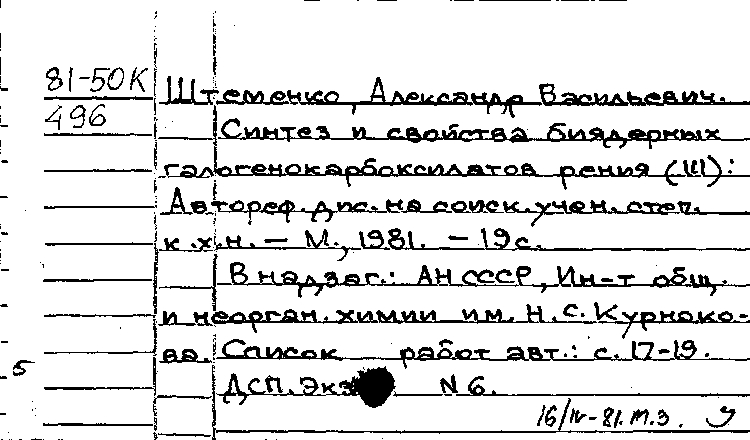 81-50К
496
Штеменко, Александр Васильевич.
Синтез и свойства биядерных
галогенокарбоксилатов рения (III):
Автореф. дис. на соиск. учен. степ.
к.х.н. – М., 1981. – 19 с.
В надзаг.: АН СССР, Ин-т общ.
и неорган. химии им. Н.С. Курнако-
ва. Список работ авт.: с. 17-19.
5
ДСП. Экз N 6.
16/IV-81. М.З.